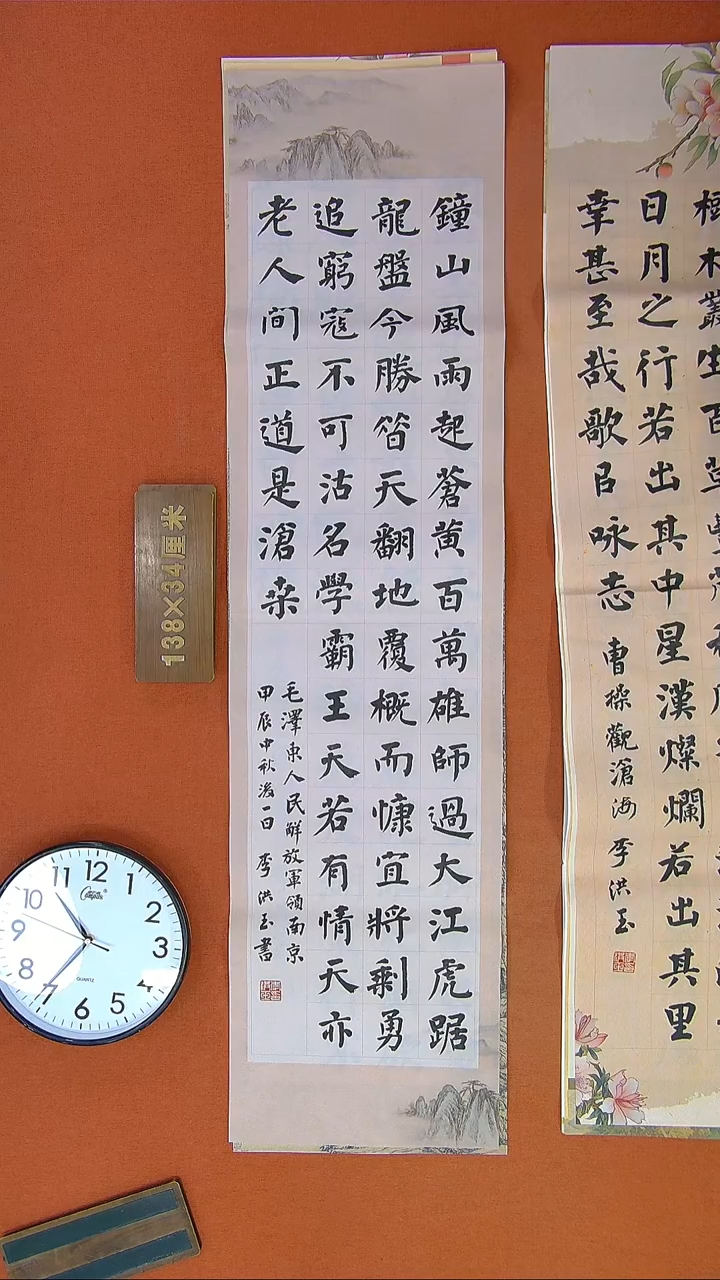 樹木叢生百草
日月之行若出其中星漢燦爛若出其里
幸甚至哉歌㠯咏志
曹操觀滄海 李洪玉
鐘山風雨起蒼黄百萬雄師過大江虎踞
龍盤今勝昔天翻地覆概而慷宜將剩勇
追窮寇不可沽名學霸王天若有情天亦
老人間正道是滄桒
毛澤東人民解放軍領南京
甲辰中秋後一日 李洪玉書
138×34厘米
12 1 2 3 5 6 7 8 9 10 11
QUARTZ